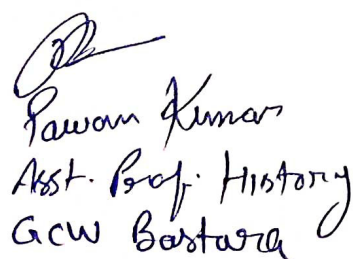 Pawan Kumar
Asst. Prof. History
GCW Bastara